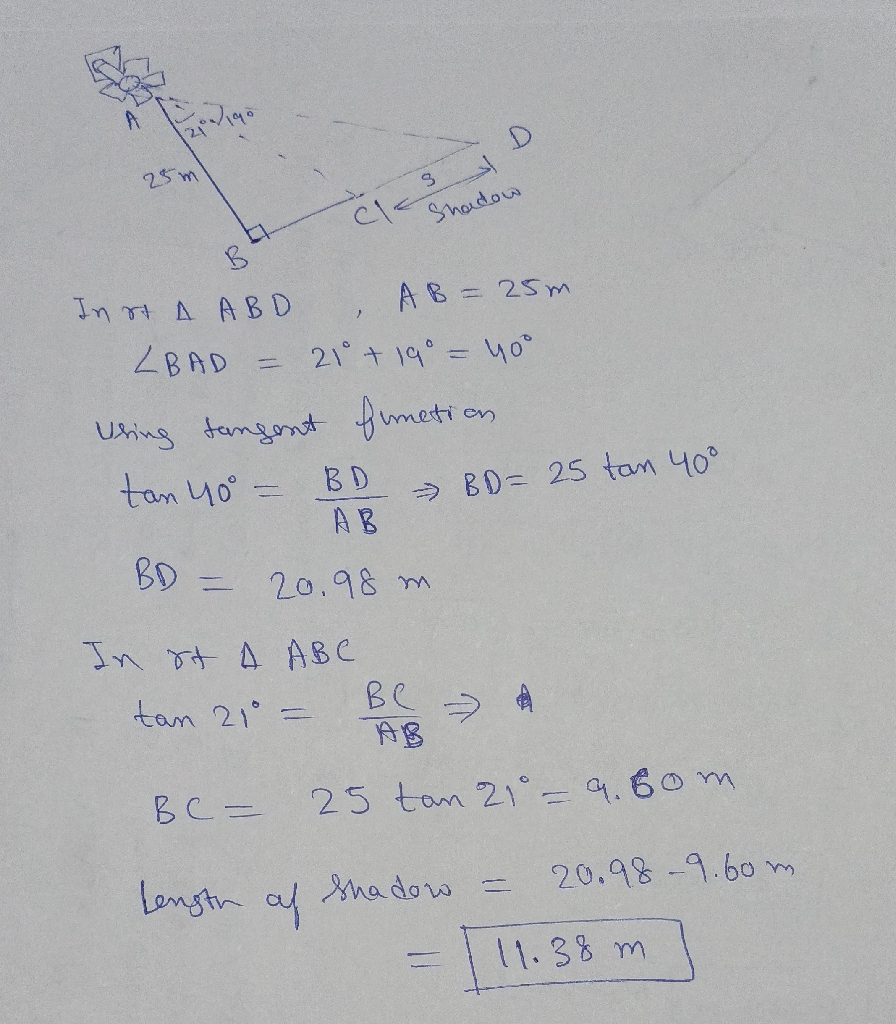 A
21° 19°
D
25m
S
C
Shadow
B
In rt Δ ABD , AB = 25m
∠BAD = 21° + 19° = 40°
Using tangent function
tan 40° = BD/AB ⇒ BD = 25 tan 40°
BD = 20.98 m
In rt Δ ABC
tan 21° = BC/AB ⇒
BC = 25 tan 21° = 9.60 m
Length of Shadow = 20.98 - 9.60 m
= 11.38 m